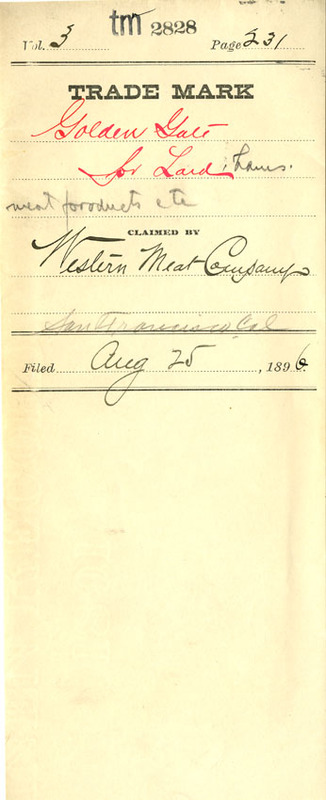 tm 2828
Vol. 3 Page 231
TRADE MARK
Golden Gate
for Lard, Hams.
meat products etc
CLAIMED BY
Western Meat Company
San Francisco, Cal
Filed Aug 25, 1896